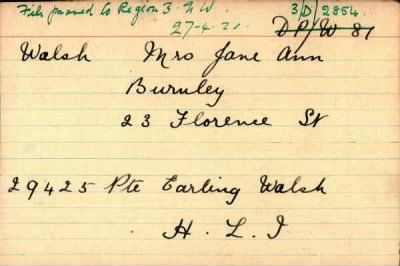 File passed to Region 3 N.W. 3/D/2854.
27-4-21. DP/W 81
Walsh Mrs Jane Ann
Burnley
23 Florence St
29425 Pte Earling Walsh
H. L. I